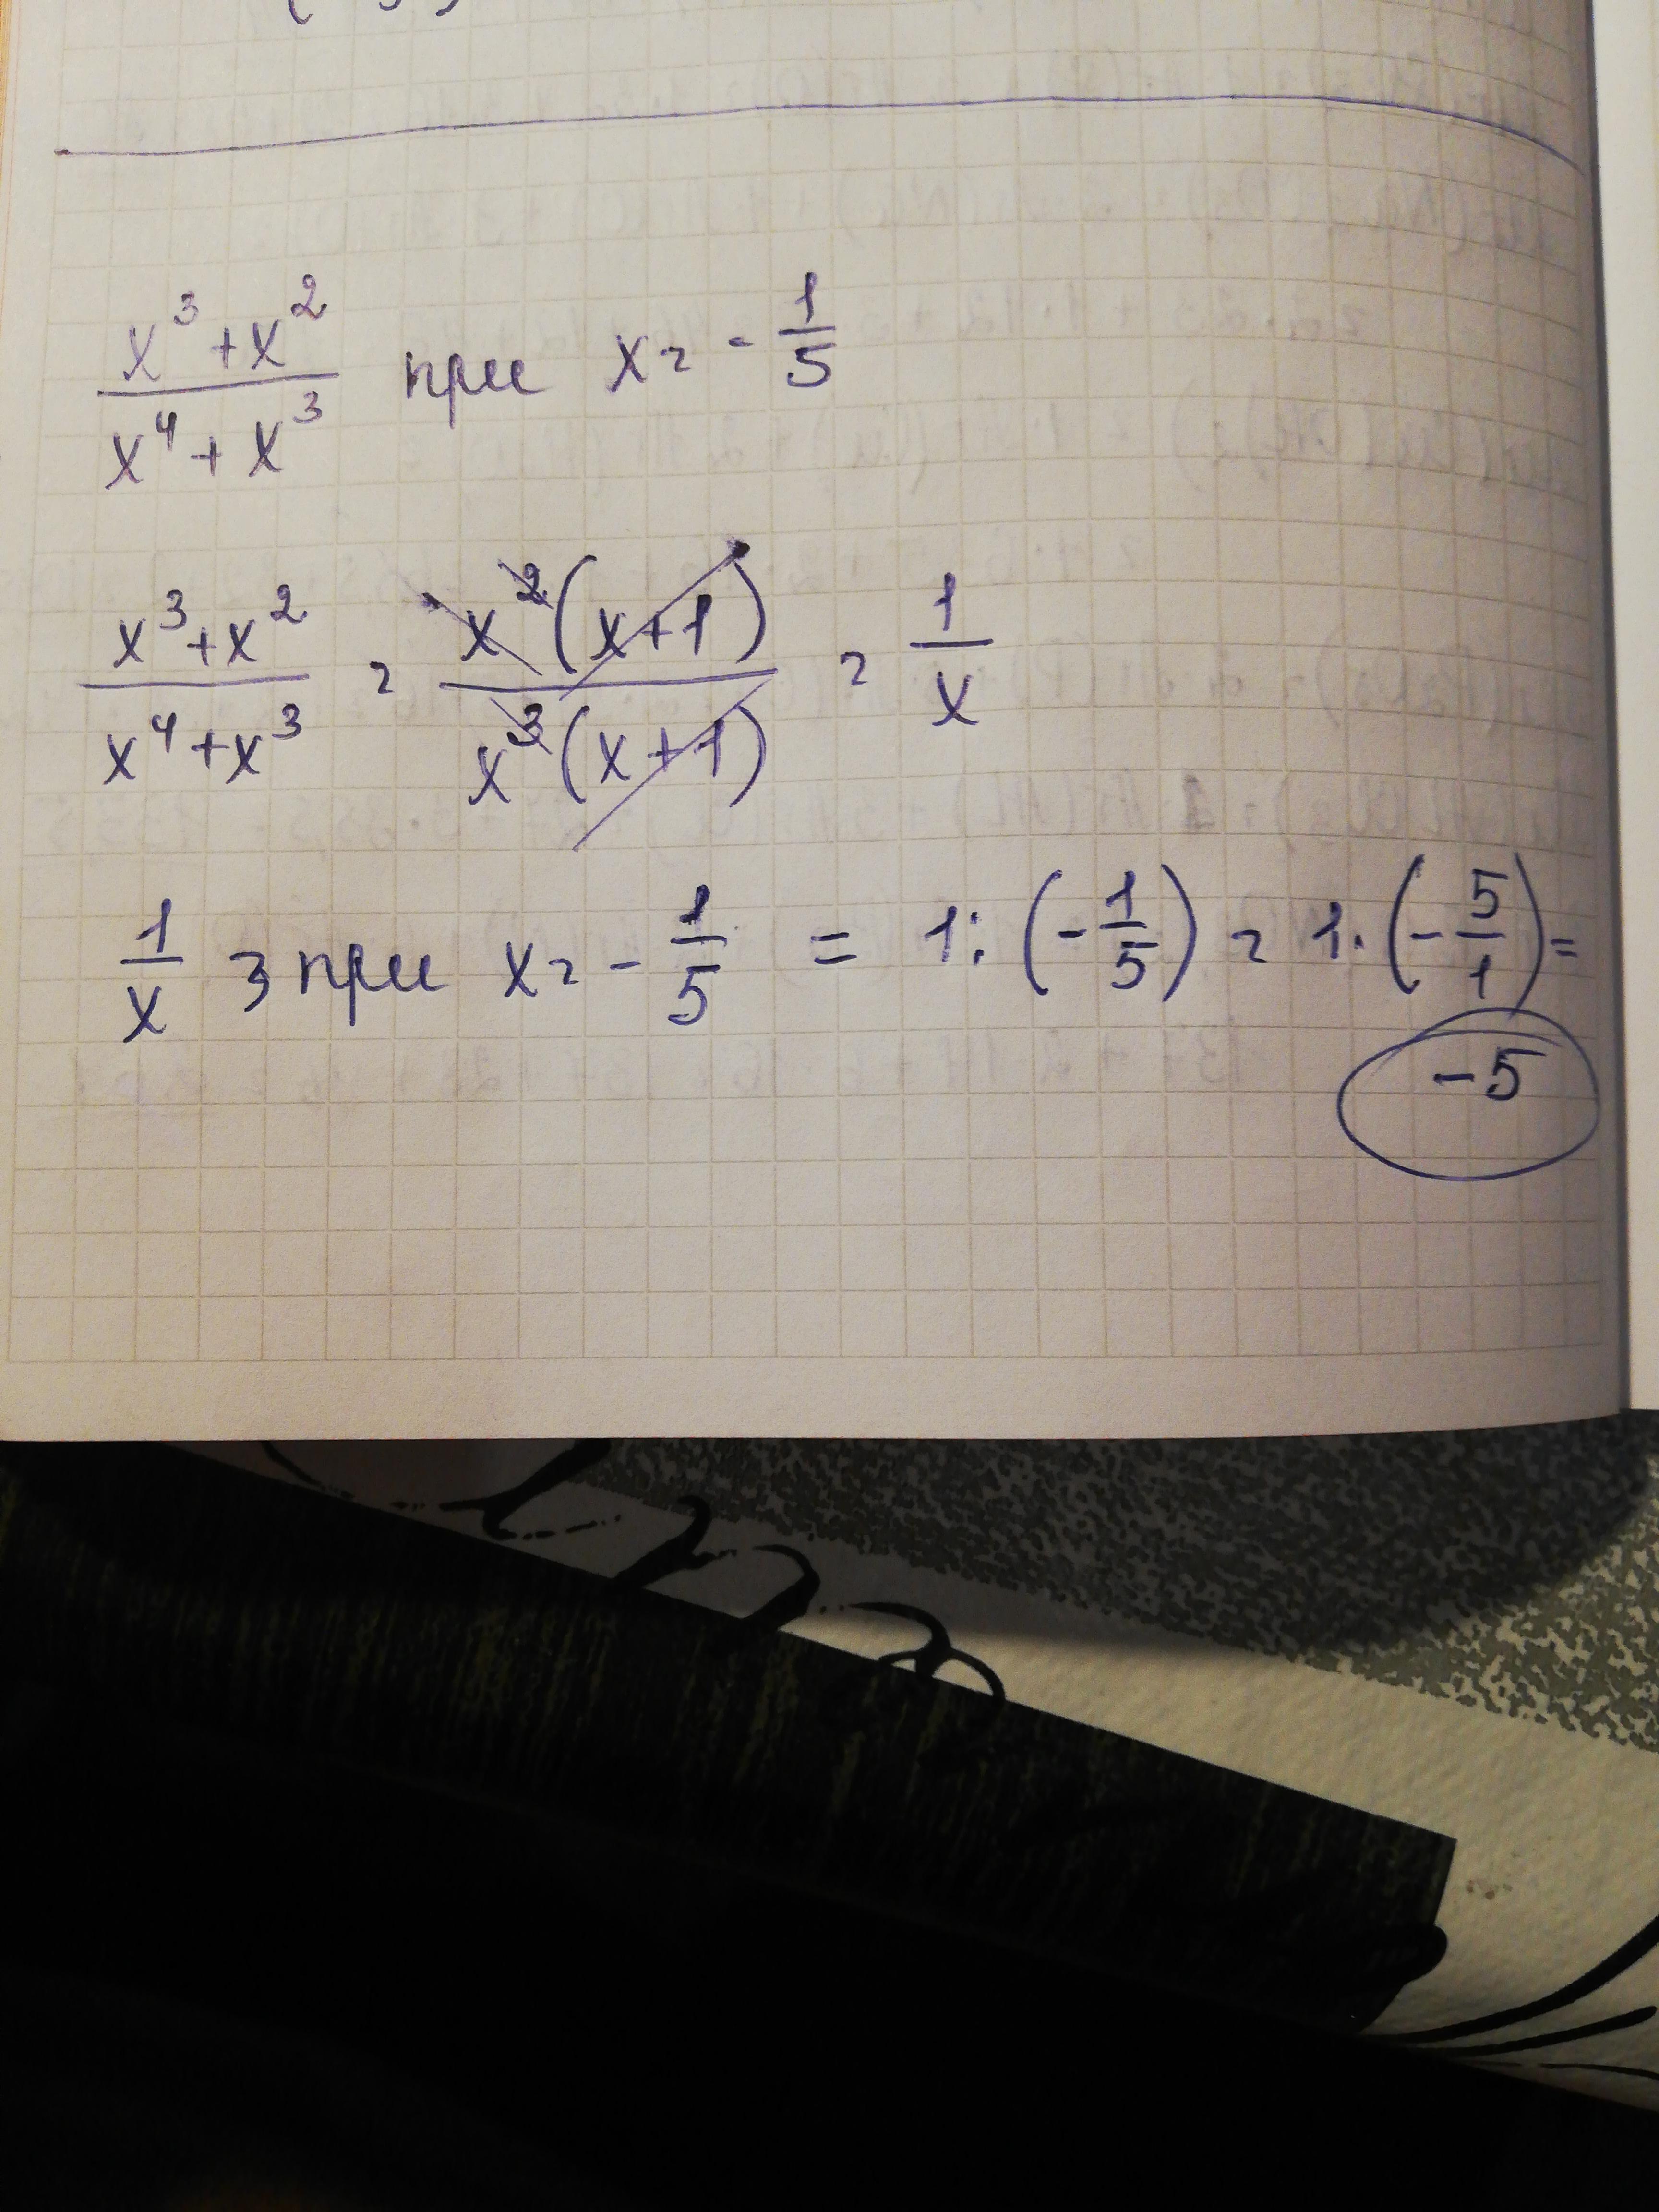 x³+x²/x⁴+x³ при x = -1/5
x³+x²/x⁴+x³ = x²(x+1)/x³(x+1) = 1/x
1/x з при x = -1/5 = 1:(-1/5) = 1·(-5/1) =
-5